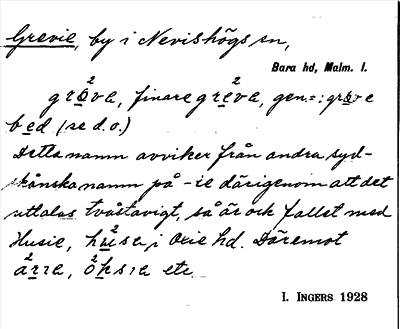 Grevie, by i Nevishögs sn,
Bara hd, Malm. l.
gröva, finare greva, gen. = : gröve
bed (se d.o.)
Detta namn avviker från andra syd-
skånska namn på -ie därigenom att det
uttalas tvåstavigt, så är och fallet med
Husie, husa, i Oxie hd. Däremot
årıa, öksıa etc.
I. INGERS 1928